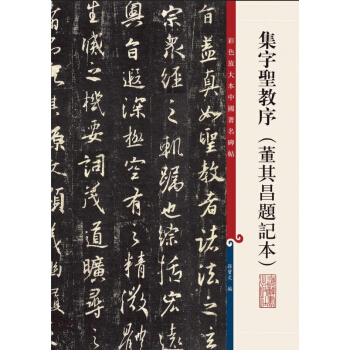 集字聖教序（董其昌題記本）
彩色放大本中國著名碑帖
孫寶文 編
旨蓋真如聖教者諸法之玄
宗眾經之軌躅也綜括宏遠
奧旨遐深極空有之精微體
生滅之機要詞茂道曠尋之